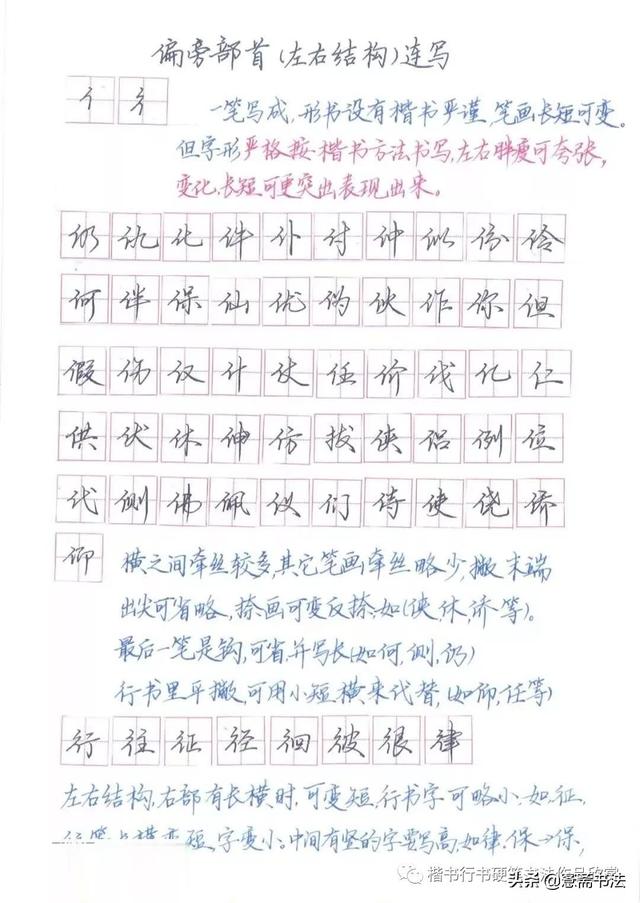 偏旁部首(左右结构)连写
亻 彳
一笔写成,行书没有楷书严谨,笔画长短可变。
但字形严格按楷书方法书写,左右胖瘦可夸张,
变化,长短可更突出表现出来。
仍 仇 化 件 仆 付 仲 似 份 伶
何 伴 保 仙 优 伪 伙 作 你 但
假 伤 仅 什 仗 任 价 伐 亿 仁
供 伏 休 伸 仿 拔 侠 侣 例 位
代 侧 佛 佩 仪 们 侍 使 侥 侨
仰
横之间牵丝较多,其它笔画牵丝略少,撇末端
出尖可省略,捺画可变反捺,如(侠,休,侨等)。
最后一笔是钩,可省,并写长(如何,侧,仍)
行书里平撇,可用小短横来代替,(如仰,任等)
行 往 征 径 徊 彼 很 律
左右结构,右部有长横时,可变短,行书字可略小,如,征,
短,字变小。中间有竖的字要写高,如律,保→保,
楷书行书硬笔书法作品欣赏
头条@慧斋书法